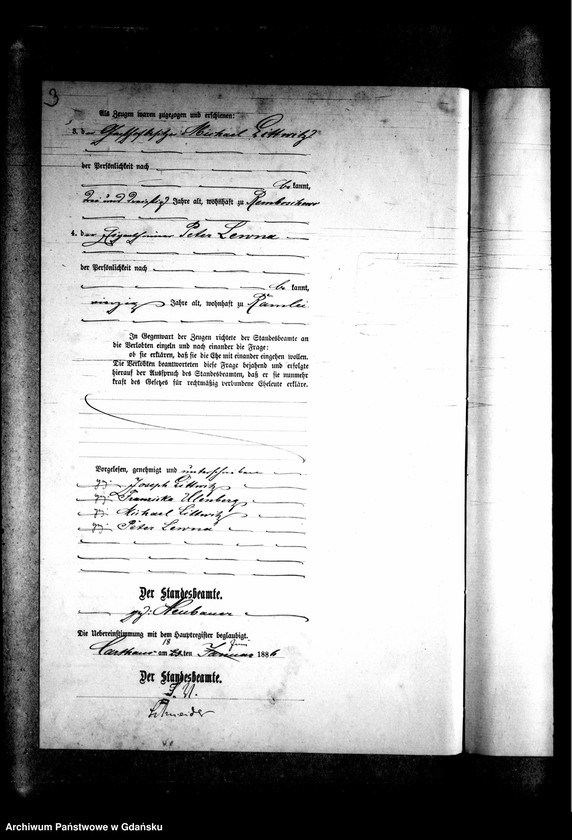 3
Als Zeugen waren zugezogen und erschienen:
3. der Michael Littwitz
der Persönlichkeit nach
bekannt,
drei und dreißig Jahre alt, wohnhaft zu
4. der Eigenthümer Peter Lewna
der Persönlichkeit nach
bekannt,
vierzig Jahre alt, wohnhaft zu Ramlei
In Gegenwart der Zeugen richtete der Standesbeamte an
die Verlobten einzeln und nach einander die Frage:
ob sie erklären, daß sie die Ehe mit einander eingehen wollen.
Die Verlobten beantworteten diese Frage bejahend und erfolgte
hierauf der Ausspruch des Standesbeamten, daß er sie nunmehr
kraft des Gesetzes für rechtmäßig verbundene Eheleute erkläre.
Vorgelesen, genehmigt und unterschrieben
gez. Joseph Littwitz
gez. Franziska Ulenberg
gez. Michael Littwitz
gez. Peter Lewna
Der Standesbeamte.
gez. Neubauer
Die Uebereinstimmung mit dem Hauptregister beglaubigt.
Carthaus am ten Januar 1886
Der Standesbeamte.
Schneider
Archiwum Państwowe w Gdańsku